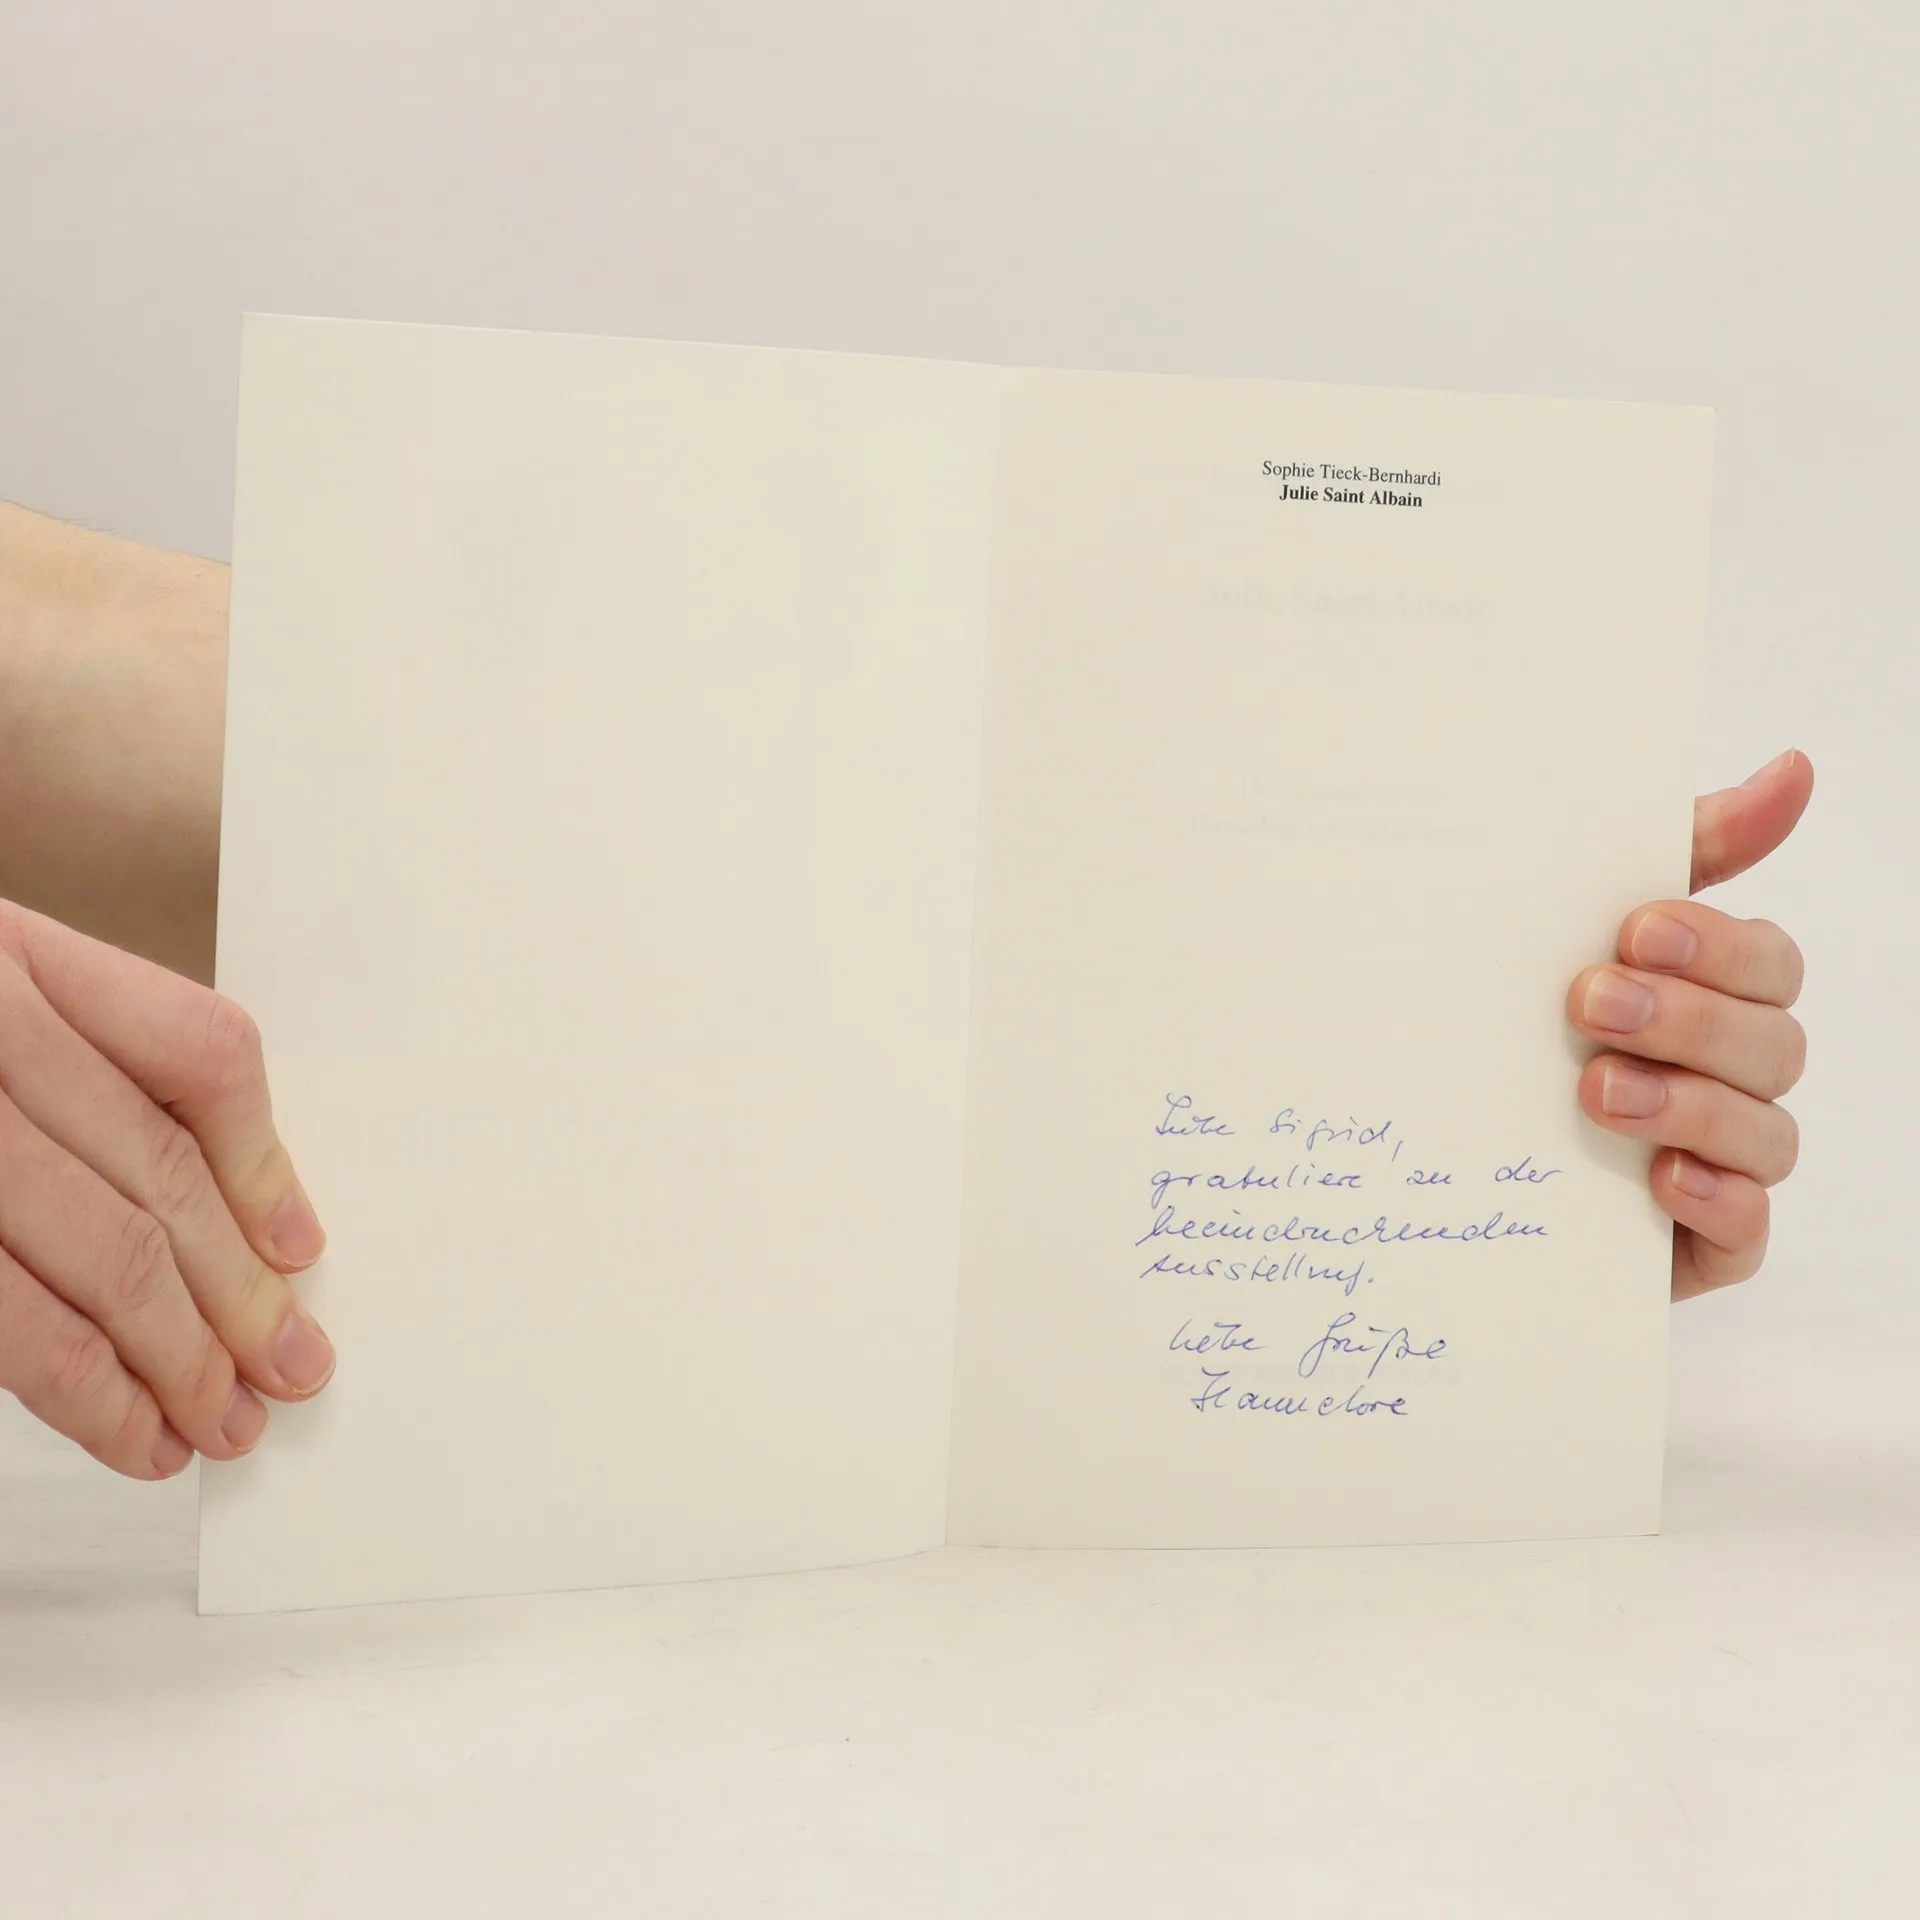 Sophie Tieck-Bernhardi
Julie Saint Albain
Julie Saint Albain
Liebe Sigrid,
gratuliere zu der
beeindruckenden
Ausstellung.
Liebe Grüße
Hannelore